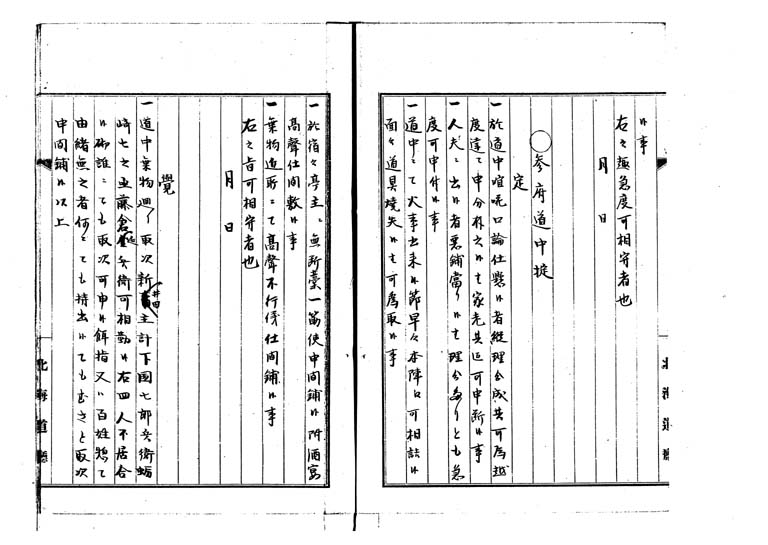 候事
右之趣急度可相守者也
月　日
○参府道中掟
定
一於道中喧𠵅口論仕懸候者縦理分成共可為越
度達而申分於有之ハ家老共迄可申断候事
一人夫ニ出候者悪鋪當り候ハ理分ありとも急
度可申付候事
一道中ニて火事出来候節早々本陣江可相詰候
面々道具焼失候ハ可為取候事
一於宿々亭主ニ無所 一 使申間鋪候附酒宴
高聲仕間敷候事
一乗物近所ニて高聲不行儀仕間鋪候事
右之旨可相守者也
月　日
覚
一道中乗物廻り取次新井田主計下国七郎兵衛蛎
崎七之丞藤倉 兵衛可相勤候右四人不居合
候ハ誰ニても取次可申候餌指又ハ百姓惣て
由緒無之者何ニても持出候てもむさと取次
申間鋪候以上
北海道廳
北海道廳